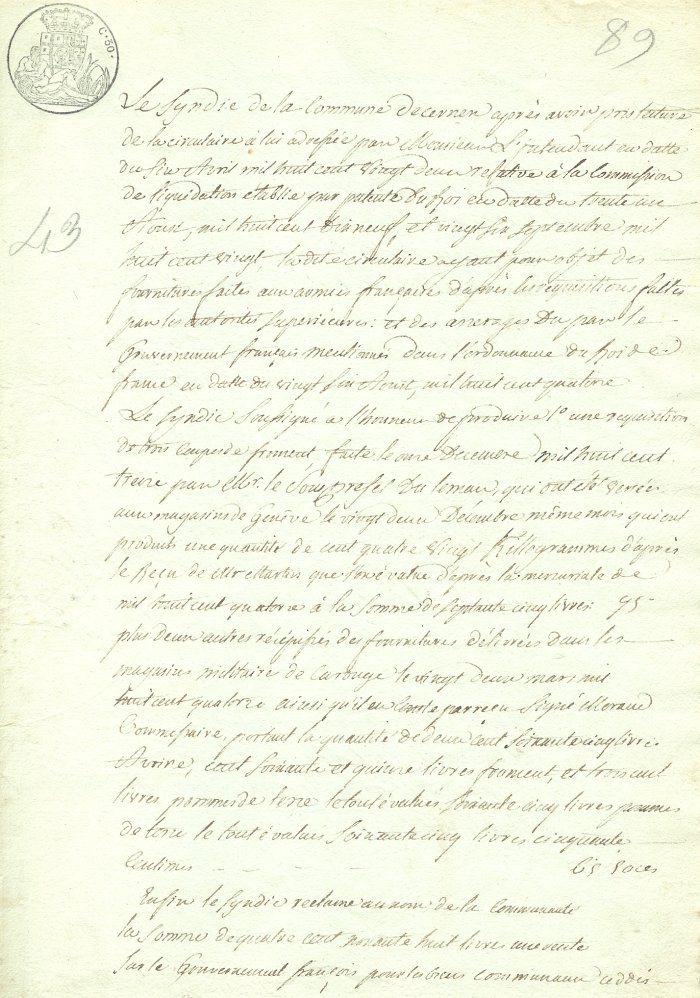 C. 50.
89
Le Syndic de la Commune de cernex après avoir pris lecture
de la circulaire à lui adressée par Monsieur L'intendant en datte
du six Avril mil huit cent vingt deux relative à la Commission
de liquidation etablie par patente du Roi en datte du trente un
Aoust, mil huit cent dix neuf, et vingt six septembre mil
43
huit cent vingt, la dite circulaire ayant pour objet des
fournitures faites aux armées françaises d'après les réquisitions faites
par les autorités Superieures : et des arrerages du par le
Gouvernement français mentionnés dans l'ordonnance du Roi de
france en datte du vingt six Aoust, mil huit cent quatorze
Le Syndic Soussigné a l'honneur de produire 1o une requisition
de trois Coupes de froment faite le onze Decembre mil huit cent
treize par Mr. le Sous prefet du leman, qui ont été versées
aux magasins de Genêve le vingt deux Decembre même mois qui ont
produits une quantité de cent quatre vingt Killogrammes d'après
le Reçu de Mr Martin que évalué d'après la mercuriale de
mil huit cent quatorze à la somme de Septante cinq livres 75
plus deux autres récépissés des fournitures délivrées dans les
magasins militaire de Carouge le vingt deux mars mil
huit cent quatorze ainsi qu'il en Conste par reçu Signé Moraud
Commissaire, portant la quantité de deux cent soixante cinq livres
Avoine, cent soixante et quinze livres froment, et trois cent
livres pommes de terre le tout évalués soixante cinq livres pommes
de terre le tout évalués Soixante cinq livres cinquante
Centimes
Enfin le Syndic réclame au nom de la Communauté
la Somme de quatre cent nonante huit livres une rente
Sur le Gouvernement françois pour les biens communaux ceddés